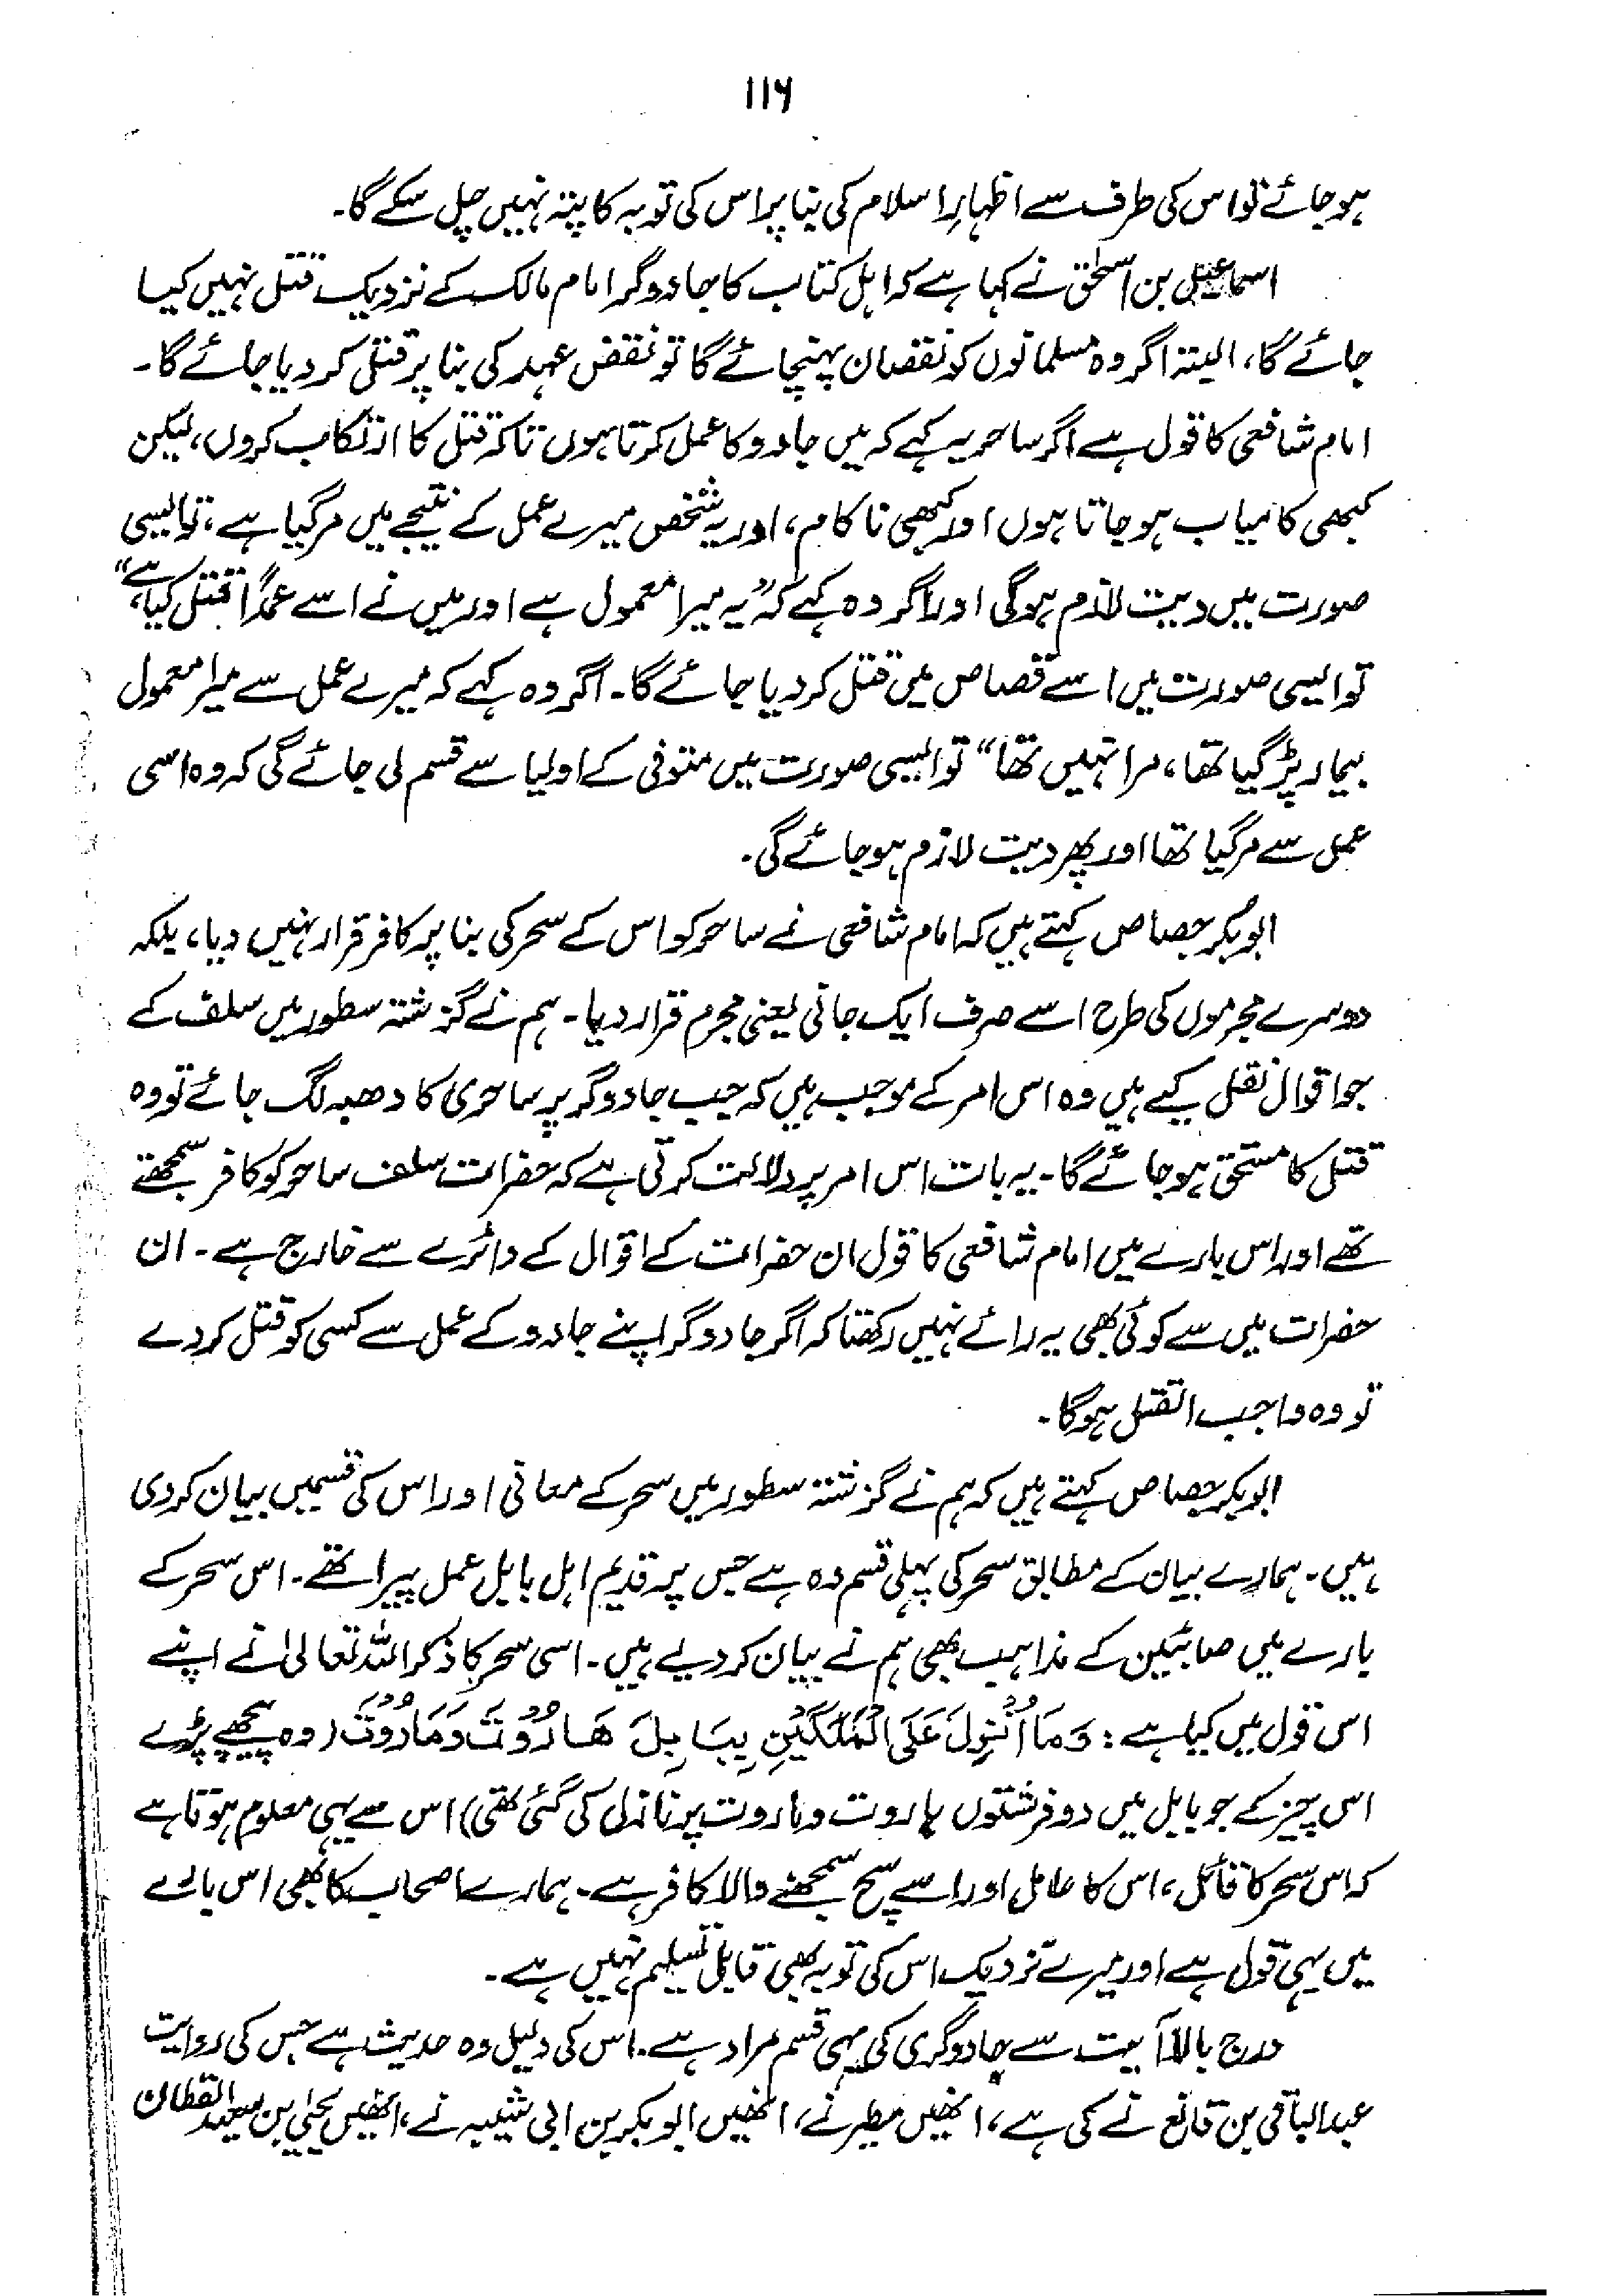 ۱۱۶
ہوجائے تو اس کی طرف سے اظہارِ اسلام کی بنا پر اس کی توبہ کا پتہ نہیں چل سکے گا۔
اسماعیل بن اسحٰق نے کہا ہے کہ اہل کتاب کا جادوگر امام مالک کے نزدیک قتل نہیں کیا
جائے گا، البتہ اگر وہ مسلمانوں کو نقصان پہنچائے گا تو نقض عہد کی بنا پر قتل کر دیا جائے گا۔
امام شافعی کا قول ہے اگر ساحر یہ کہے کہ میں جادو کا عمل کرتا ہوں تاکہ قتل کا ارتکاب کروں، لیکن
کبھی کامیاب ہو جاتا ہوں اور کبھی ناکام، اور یہ شخص میرے عمل کے نتیجے میں مر گیا ہے، تو ایسی
صورت میں دیت لازم ہوگی اور اگر وہ کہے کہ "یہ میرا معمول ہے اور میں نے اسے عمداً قتل کیا ہے"
تو ایسی صورت میں اسے قصاص میں قتل کر دیا جائے گا۔ اگر وہ کہے کہ میرے عمل سے میرا معمول
بیمار پڑ گیا تھا، مرا نہیں تھا" تو ایسی صورت میں متوفی کے اولیا سے قسم لی جائے گی کہ وہ اسی
عمل سے مر گیا تھا اور پھر دیت لازم ہو جائے گی۔
ابوبکر جصاص کہتے ہیں کہ امام شافعی نے ساحر کو اس کے سحر کی بنا پر کافر قرار نہیں دیا، بلکہ
دوسرے مجرموں کی طرح اسے صرف ایک جانی یعنی مجرم قرار دیا۔ ہم نے گزشتہ سطور میں سلف کے
جو اقوال نقل کیے ہیں وہ اس امر کے موجب ہیں کہ جب جادوگر پر ساحری کا دھبہ لگ جائے تو وہ
قتل کا مستحق ہو جائے گا۔ یہ بات اس امر پر دلالت کرتی ہے کہ حضرات سلف ساحر کو کافر سمجھتے
تھے اور اس بارے میں امام شافعی کا قول ان حضرات کے اقوال کے دائرے سے خارج ہے۔ ان
حضرات میں سے کوئی بھی یہ رائے نہیں رکھتا کہ اگر جادوگر اپنے جادو کے عمل سے کسی کو قتل کر دے
تو وہ واجب القتل ہوگا۔
ابوبکر جصاص کہتے ہیں کہ ہم نے گزشتہ سطور میں سحر کے معانی اور اس کی قسمیں بیان کر دی
ہیں۔ ہمارے بیان کے مطابق سحر کی پہلی قسم وہ ہے جس پر قدیم اہل بابل عمل پیرا تھے۔ اس سحر کے
بارے میں صابئین کے مذاہب بھی ہم نے بیان کر دیے ہیں۔ اسی سحر کا ذکر اللہ تعالیٰ نے اپنے
اس قول میں کیا ہے: وَمَا اُنْزِلَ عَلَی الْمَلَکَیْنِ بِبَابِلَ ھَارُوْتَ وَمَارُوْتَ (وہ پیچھے پڑے
اس چیز کے جو بابل میں دو فرشتوں ہاروت و ماروت پر نازل کی گئی تھی) اس سے یہی معلوم ہوتا ہے
کہ اس سحر کا قائل، اس کا عامل اور اسے سچ سمجھنے والا کافر ہے۔ ہمارے اصحاب کا بھی اس بارے
میں یہی قول ہے اور میرے نزدیک اس کی توبہ بھی قابل تسلیم نہیں ہے۔
درج بالا آیت سے جادوگری کی یہی قسم مراد ہے۔ اس کی دلیل وہ حدیث ہے جس کی روایت
عبدالباقی بن قانع نے کی ہے، انھیں مطیر نے، انھیں ابوبکر بن ابی شیبہ نے، انھیں یحیٰی بن سعید القطان